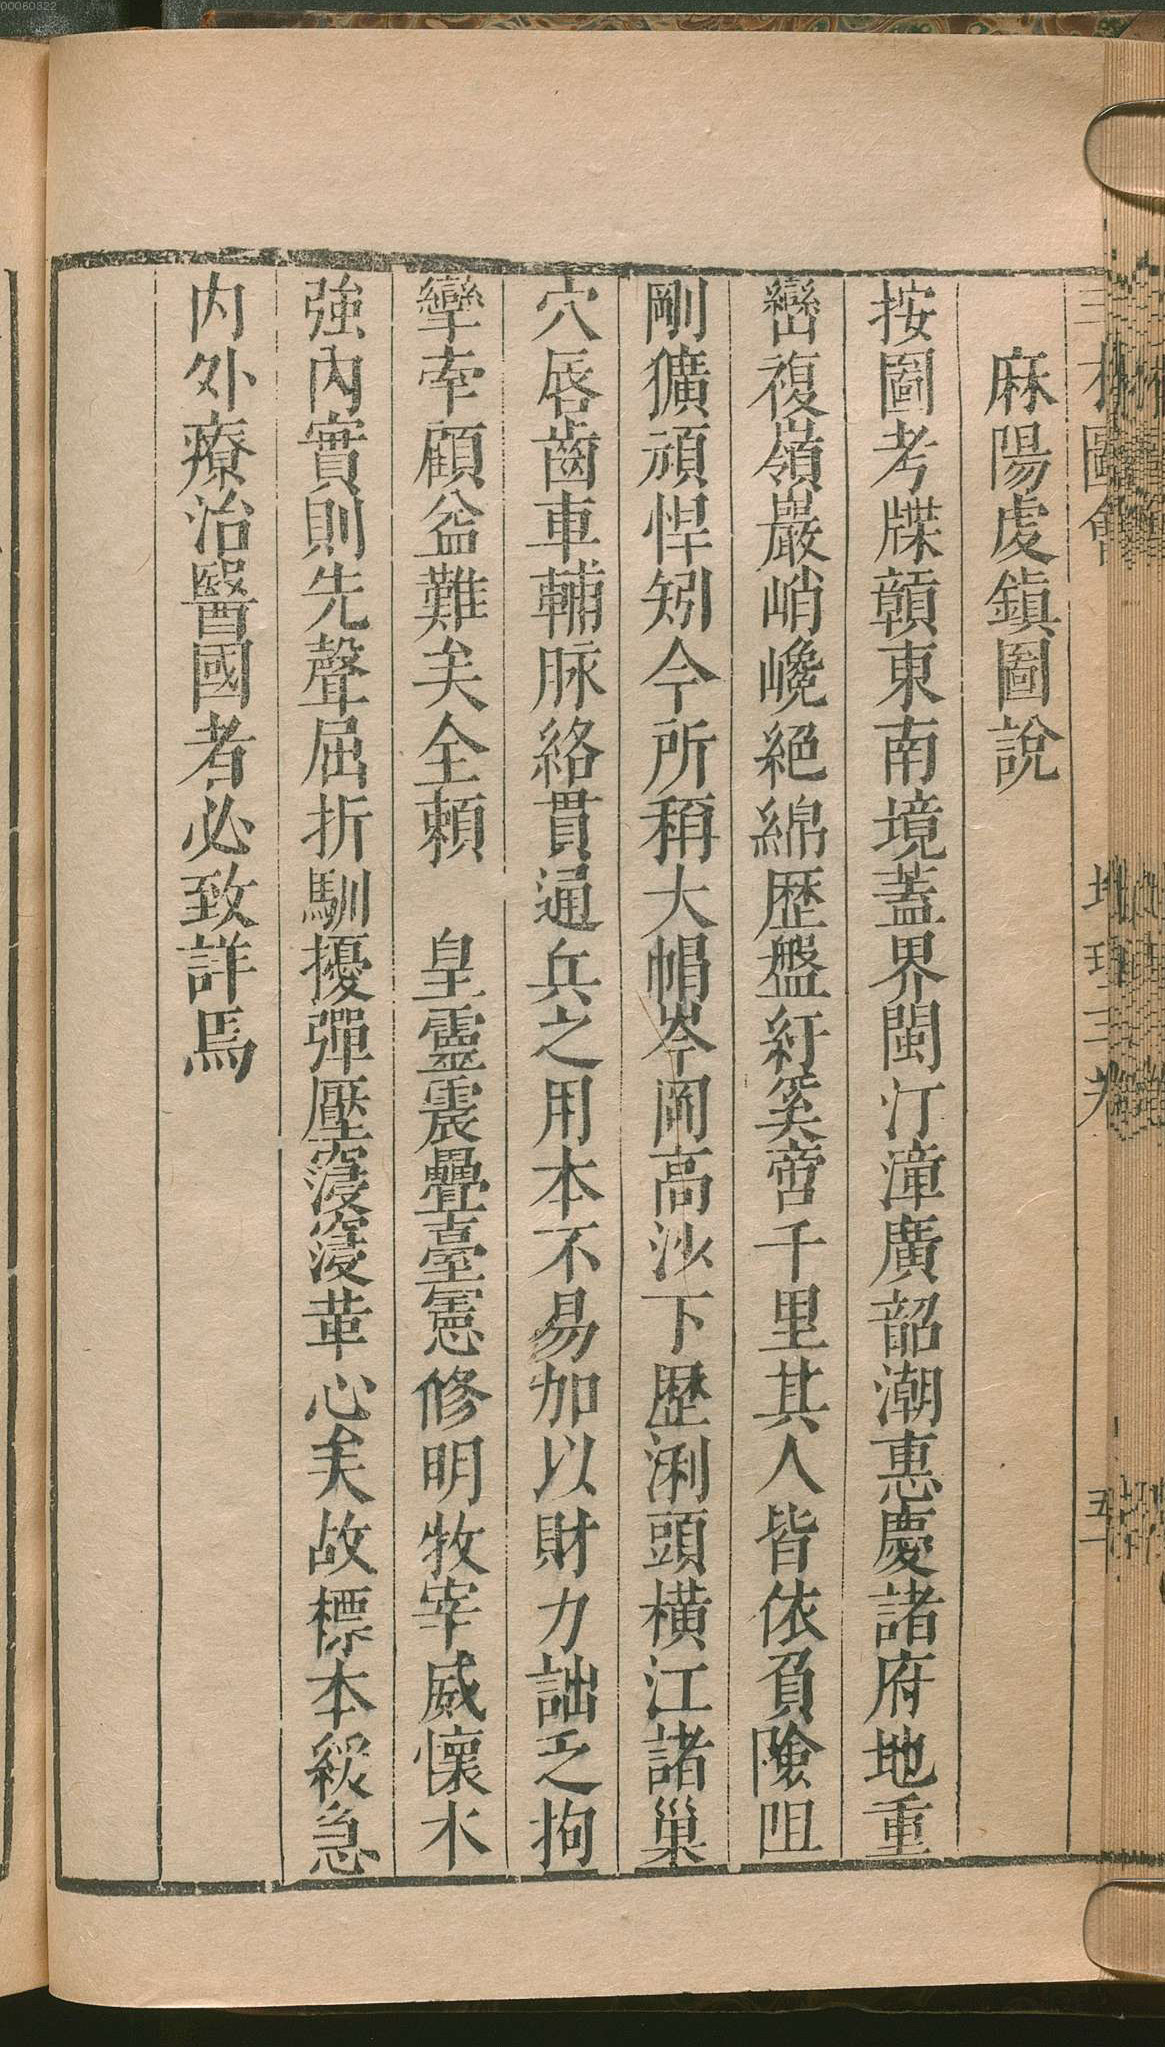 00060322
麻陽虔鎮圖說
按圖考牒贑東南境蓋界閩汀漳廣韶潮惠慶諸府地重
巒複嶺巖峭巉絕綿歴盤紆奚啻千里其人皆依負險咀
剛獷頑悍矧今所稱大帽岑岡高沙下歴浰頭橫江諸巢
穴唇齒車輔脉絡貫通兵之用本不易加以財力詘之拘
攣牽顧益難矣全賴　皇靈震疊臺憲修明牧宰威懷水
強內實則先聲屈折馴擾彈壓寖寖革心矣故標本緩急
内外療治醫國者必致詳焉